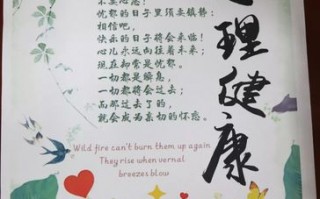 忧郁的日子里须要镇静;
相信吧,
快乐的日子将会来临!
心儿永远向往着未来;
现在却常是忧郁。
一切都是瞬息,
一切都将会过去;
而那过去了的,
就会成为亲切的怀恋。
理健康
Wild fire can't burn them up again
They rise when vernal
breezes blow